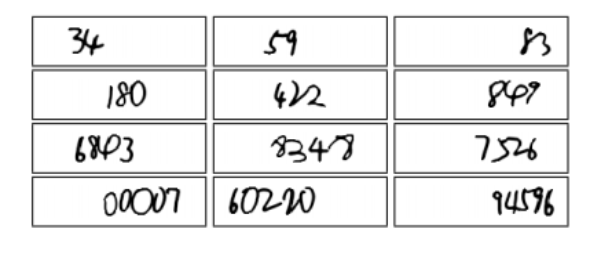 34 59 83
180 422 849
6843 83478 7526
00007 60220 94596